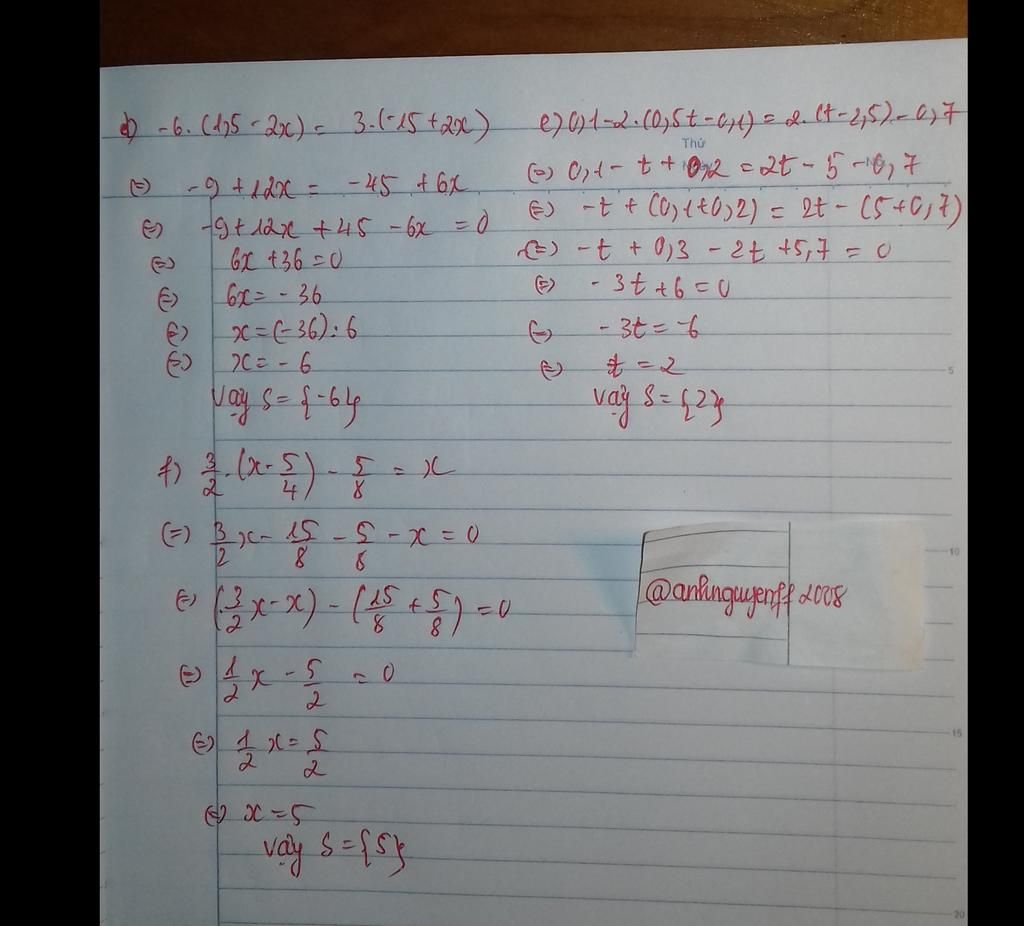 d) -6.(1,5 - 2x) = 3.(-15 + 2x)
(=) -9 + 12x = -45 + 6x
(=) -9 + 12x + 45 - 6x = 0
(=) 6x + 36 = 0
(=) 6x = - 36
(=) x = (-36) : 6
(=) x = - 6
Vậy S = {-6}
e) 0,1 - 2.(0,5t - 0,1) = 2.(t - 2,5) - 0,7
Thứ
(=) 0,1 - t + 0,2 = 2t - 5 - 0,7
(=) -t + (0,1 + 0,2) = 2t - (5 + 0,7)
(=) -t + 0,3 - 2t + 5,7 = 0
(=) - 3t + 6 = 0
(=) - 3t = -6
(=) t = 2
Vậy S = {2}
5
f) 3/2 . (x - 5/4) - 5/8 = x
(=) 3/2 x - 15/8 - 5/8 - x = 0
(=) (3/2 x - x) - (15/8 + 5/8) = 0
(=) 1/2 x - 5/2 = 0
(=) 1/2 x = 5/2
(=) x = 5
Vậy S = {5}
10
@anhnguyenff2008
15
20